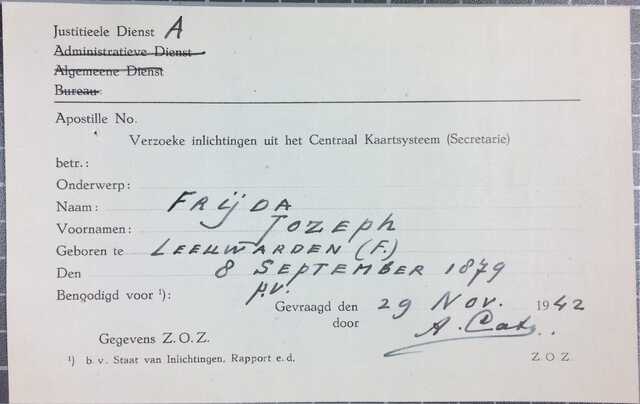 Justitieele Dienst A
Administratieve Dienst
Algemeene Dienst
Bureau:
Apostille No.
Verzoeke inlichtingen uit het Centraal Kaartsysteem (Secretarie)
betr.:
Onderwerp:
Naam: FRIJDA
Voornamen: JOZEPH
Geboren te LEEUWARDEN (F.)
Den 8 SEPTEMBER 1879
Benoodigd voor ¹): p.v.
Gevraagd den 29 Nov. 1942
door A. Cats.
Gegevens Z.O.Z.
¹) b.v. Staat van Inlichtingen, Rapport e.d.
Z O Z